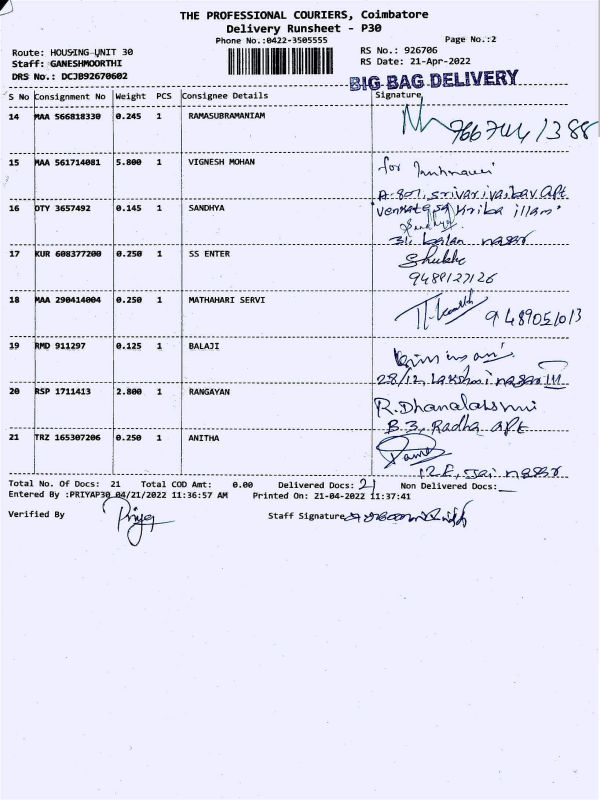 THE PROFESSIONAL COURIERS, Coimbatore
Delivery Runsheet - P30
Phone No.:0422-3505555
Page No.:2
Route: HOUSING UNIT 30
RS No.: 926706
Staff: GANESHMOORTHI
RS Date: 21-Apr-2022
DRS No.: DCJB92670602
BIG BAG DELIVERY
S No Consignment No Weight PCS Consignee Details Signature
14 MAA 566818330 0.245 1 RAMASUBRAMANIAM
15 MAA 561714081 5.800 1 VIGNESH MOHAN for
A-801, srivari vaibav apt
16 DTY 3657492 0.145 1 SANDHYA illam"
31, balan nagar
17 KUR 608377200 0.250 1 SS ENTER
9489127126
18 MAA 290414004 0.250 1 MATHAHARI SERVI 9489051013
19 RMD 911297 0.125 1 BALAJI
28/12, Lakshmi nagar III
20 RSP 1711413 2.800 1 RANGAYAN R. Dhanalakshmi
B.3, Radha apt
21 TRZ 165307206 0.250 1 ANITHA
12.E, Jai nagar
Total No. Of Docs: 21 Total COD Amt: 0.00 Delivered Docs: 21 Non Delivered Docs:
Entered By :PRIYAP30 04/21/2022 11:36:57 AM Printed On: 21-04-2022 11:37:41
Verified By Priya Staff Signature